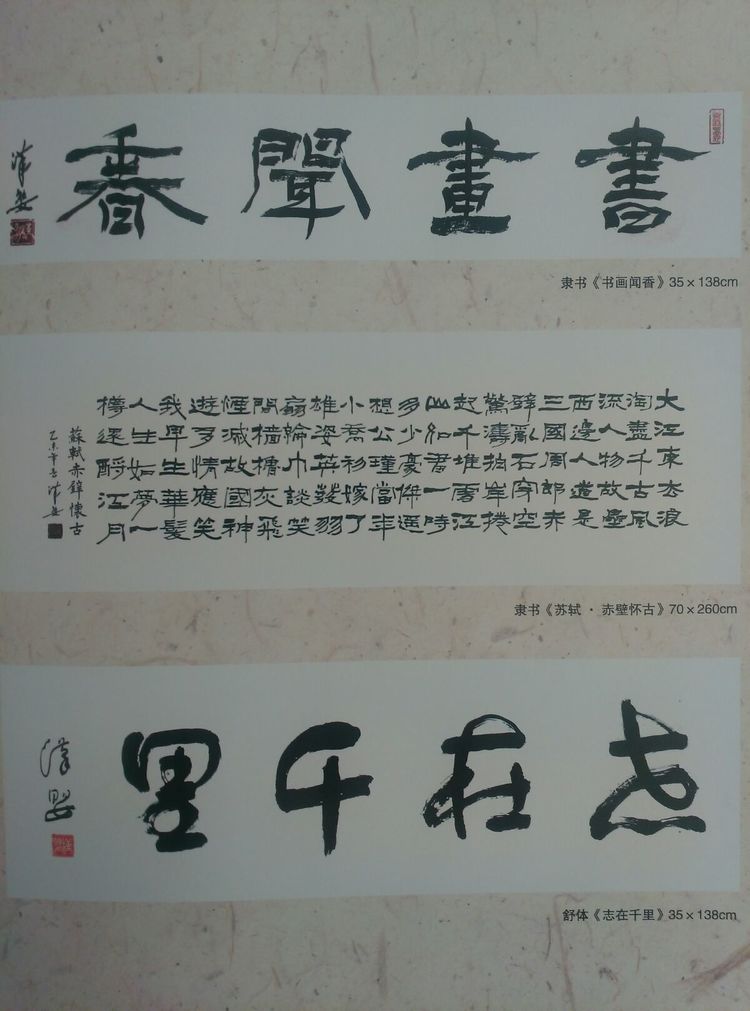 書畫聞香
隶书《书画闻香》35×138cm
大江東去浪
淘盡千古風
流人物故壘
西邊人道是
三國周郎赤
壁亂石穿空
驚濤拍岸捲
起千堆雪江
山如畫一時
多少豪傑遥
想公瑾當年
小喬初嫁了
雄姿英發羽
扇綸巾談笑
間檣櫓灰飛
煙滅故國神
遊多情應笑
我早生華髮
人生如夢一
樽還酹江月
蘇軾赤壁懷古
乙未年
隶书《苏轼·赤壁怀古》70×260cm
志在千里
舒体《志在千里》35×138cm